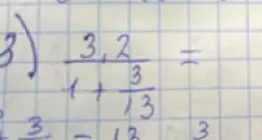 3) 3,2 / (1 + 3/13) =
3 = 13 3